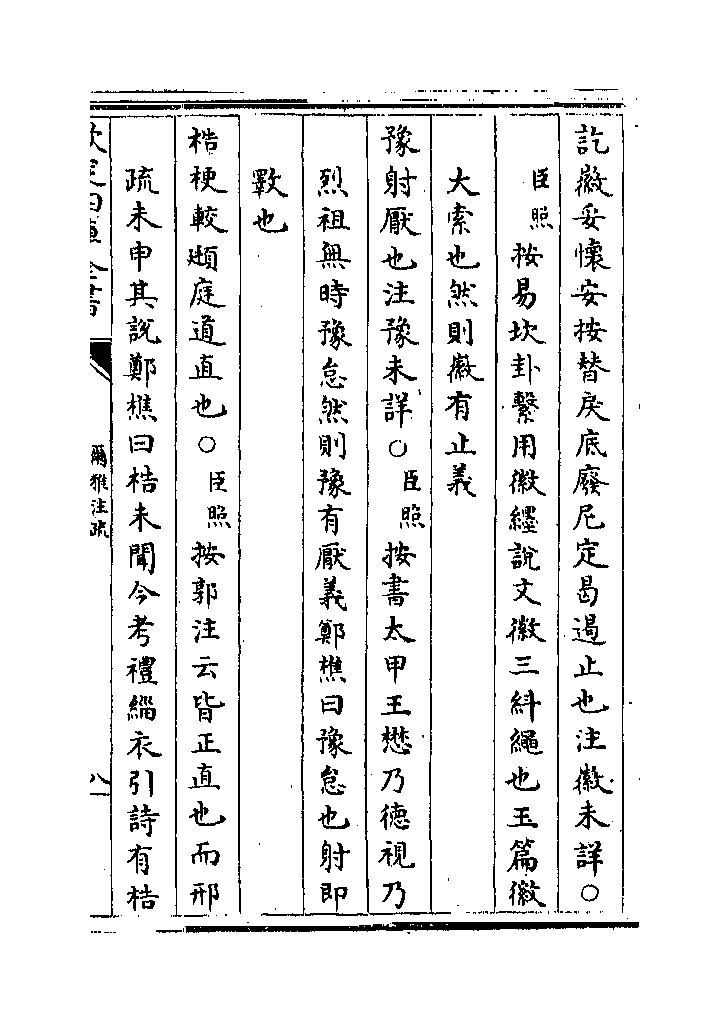 訖徽妥懷安按替戾底廢尼定曷遏止也注徽未詳○
臣照按易坎卦繫用徽纆說文徽三糾繩也玉篇徽
大索也然則徽有止義
豫射厭也注豫未詳○臣照按書太甲王懋乃德視乃
烈祖無時豫怠然則豫有厭義鄭樵曰豫怠也射即
斁也
梏梗較頲庭道直也○臣照按郭注云皆正直也而邢
疏未申其說鄭樵曰梏未聞今考禮緇衣引詩有梏
欽定四庫全書
爾雅注疏
八